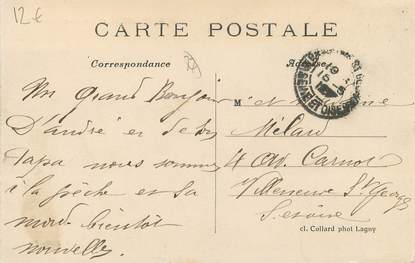 12€
CARTE POSTALE
Correspondance
Adresse
Un Grand Bonjour
D'andré et de son
Papa nous sommes
à la pêche et sa
mord bientôt
nouvelles
M et Madame
Mélard
4 Av. Carnot
Villeneuve St Georges
S. et oise
cl. Collard phot Lagny